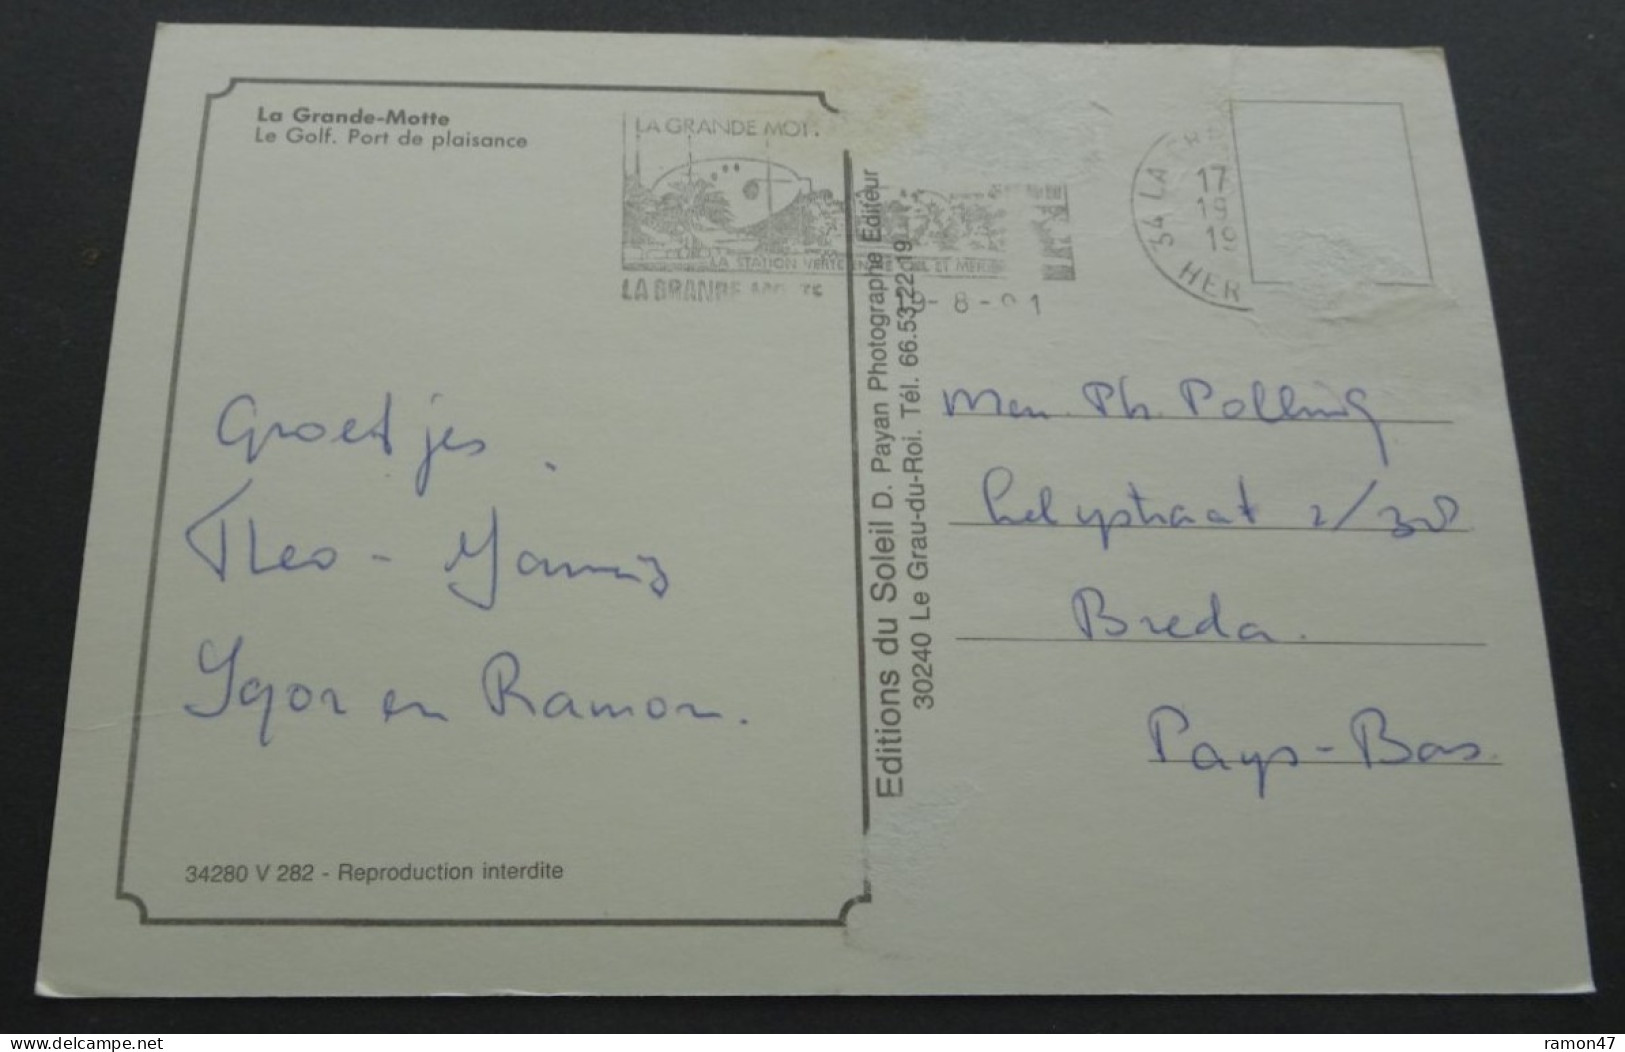 La Grande-Motte
Le Golf. Port de plaisance
LA GRANDE MOT
LA STATION VERTE EN CIEL ET MER
LA GRANDE MOTTE
8 - 91
34 LA
17
19
HER
Groetjes.
Theo - Yannis
Ygor en Ramon.
34280 V 282 - Reproduction interdite
Editions du Soleil D. Payan Photographe Editeur
30240 Le Grau-du-Roi. Tél. 66.53.22.19
Men. Ph. Polling
Lelystraat 2/38
Breda.
Pays-Bas.
delcampe.net
ramon47